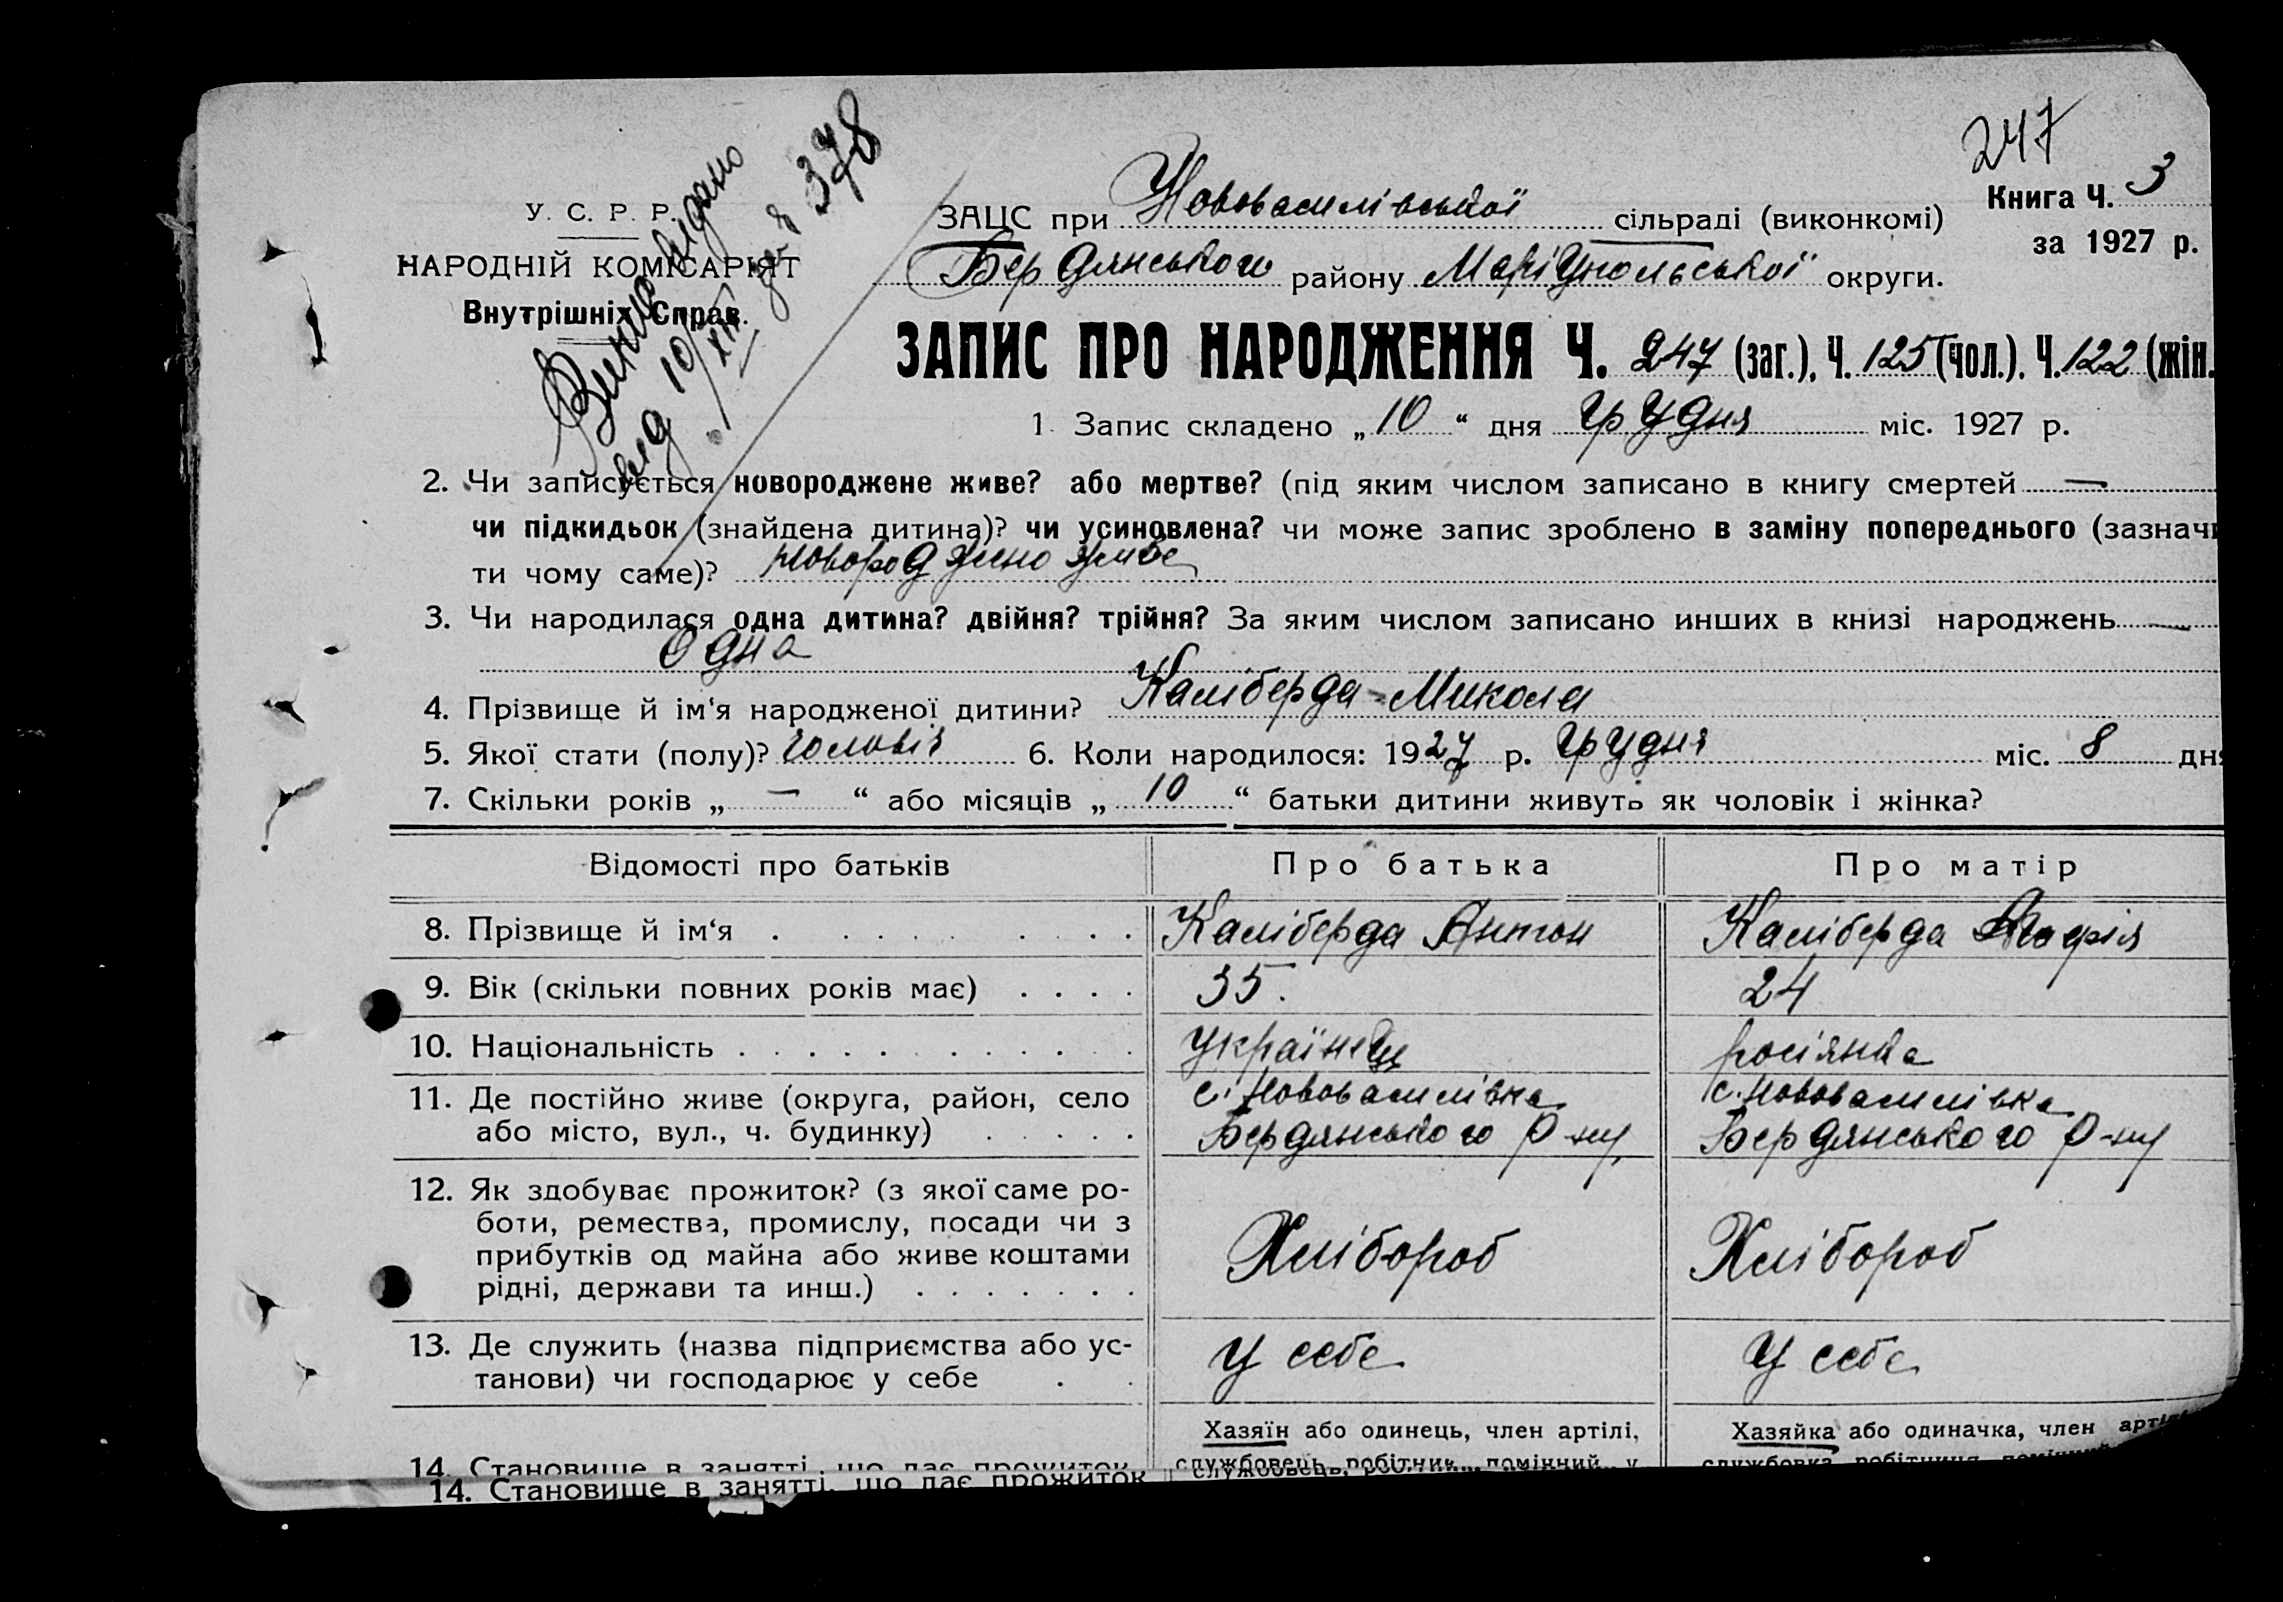 247
Виписа видано
від 10/XII за № 378
У. С. Р. Р.
НАРОДНІЙ КОМІСАРІЯТ
Внутрішніх Справ.
ЗАЦС при Нововасилівської сільраді (виконкомі)
Книга Ч. 3
за 1927 р.
Бердянського району Маріупольської округи.
ЗАПИС ПРО НАРОДЖЕННЯ Ч. 247 (заг.), Ч. 125 (чол.). Ч. 122 (жін.
1. Запис складено „ 10 “ дня грудня міс. 1927 р.
2. Чи записується новороджене живе? або мертве? (під яким числом записано в книгу смертей —
чи підкидьок (знайдена дитина)? чи усиновлена? чи може запис зроблено в заміну попереднього (зазначи
ти чому саме)? новороджено живе
3. Чи народилася одна дитина? двійня? трійня? За яким числом записано инших в книзі народжень —
Одна
4. Прізвище й ім‘я народженої дитини? Каліберда Микола
5. Якої стати (полу)? чоловіч 6. Коли народилося: 1927 р. грудня міс. 8 дня
7. Скільки років „ — “ або місяців „ 10 “ батьки дитини живуть як чоловік і жінка?
Відомості про батьків Про батька Про матір
8. Прізвище й ім‘я . . . . . . . . . Каліберда Антон Каліберда Марія
9. Вік (скільки повних років має) . . . . 35. 24
10. Національність . . . . . . . . . . . . українець росіянка
11. Де постійно живе (округа, район, село с. Нововасилівка с. Нововасилівка
або місто, вул., ч. будинку) . . . . . Бердянського р-ну Бердянського р-ну
12. Як здобуває прожиток? (з якої саме ро-
боти, ремества, промислу, посади чи з
прибутків од майна або живе коштами Хлібороб Хлібороб
рідні, держави та инш.) . . . . . . .
13. Де служить (назва підприємства або ус- У себе У себе
танови) чи господарює у себе . .
Хазяїн або одинець, член артілі, Хазяйка або одиначка, член артілі
14. Становище в занятті, що дає прожиток службовець, робітник, помічний у службовка, робітниця
14. Становище в занятті, що дає прожиток службовець,